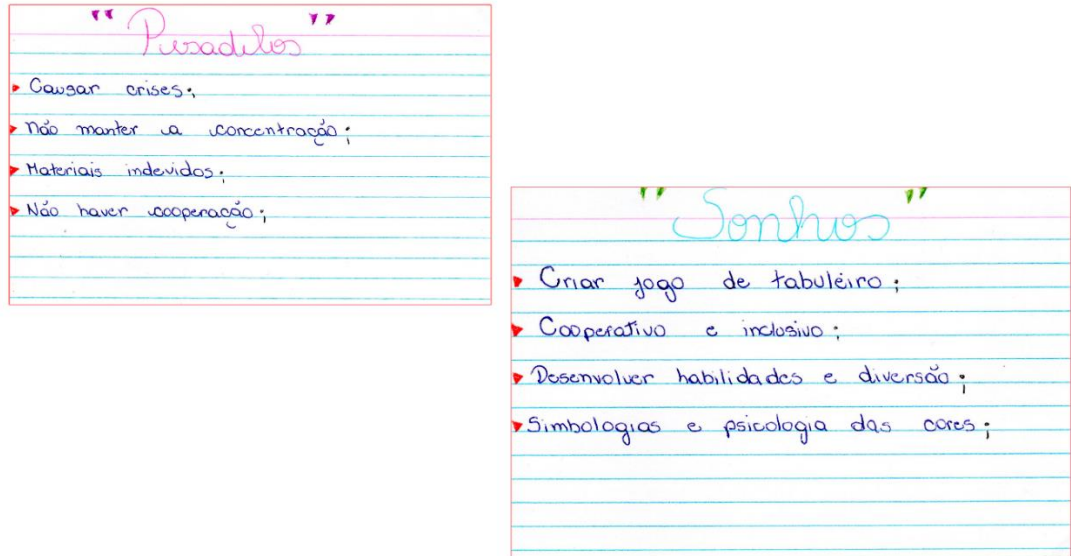 "Pesadelos"
Causar crises;
não manter a concentração;
Materiais indevidos;
Não haver cooperação;
"Sonhos"
Criar jogo de tabuleiro;
Cooperativo e inclusivo;
Desenvolver habilidades e diversão;
Simbologias e psicologia das cores;